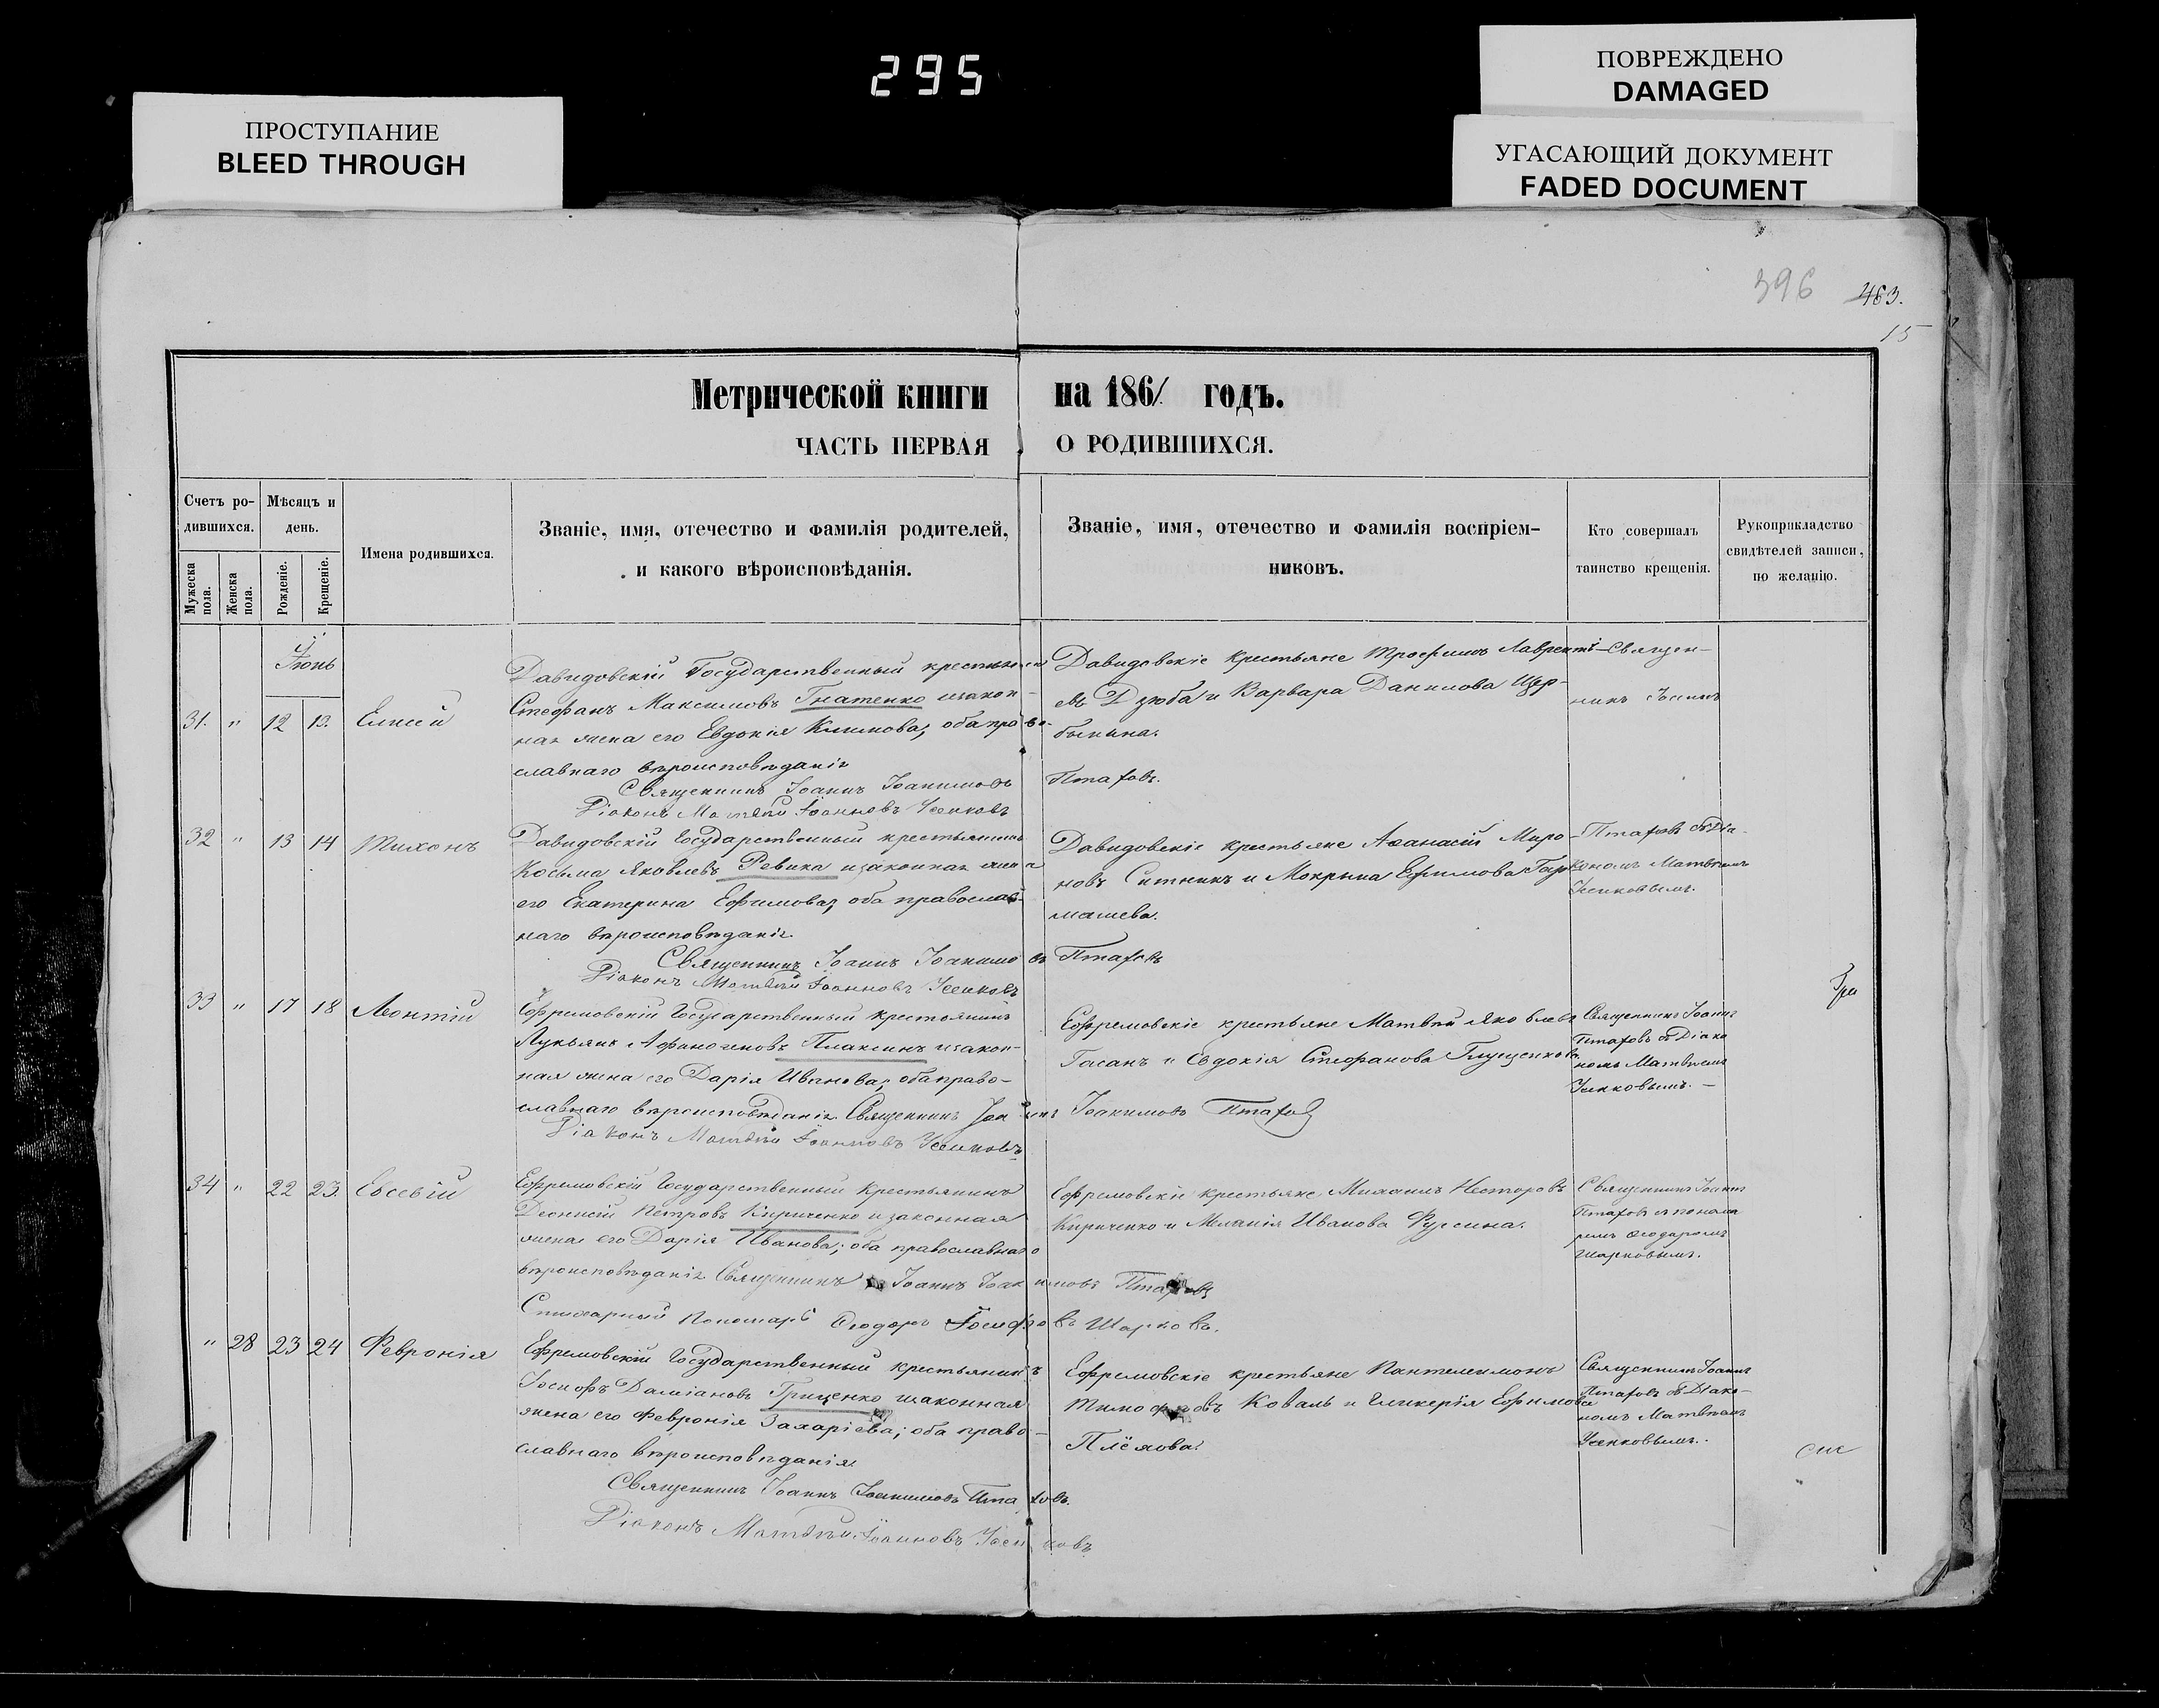 295
ПОВРЕЖДЕНО
DAMAGED
ПРОСТУПАНИЕ
BLEED THROUGH
УГАСАЮЩИЙ ДОКУМЕНТ
FADED DOCUMENT
396 463.
15
Метрической книги на 1861 годъ.
ЧАСТЬ ПЕРВАЯ О РОДИВШИХСЯ.
Счетъ ро-
дившихся.
Мужеска
пола.
Женска
пола.
Мѣсяцъ и
день.
Рожденіе.
Крещеніе.
Имена родившихся.
Званіе, имя, отечество и фамилія родителей,
и какого вѣроисповѣданія.
Званіе, имя, отечество и фамилія воспріем-
никовъ.
Кто совершалъ
таинство крещенія.
Рукоприкладство
свидѣтелей записи,
по желанію.
Іюнь
31. " 12 13. Елисей
Давидовскій Государственный крестьянинъ
Стефанъ Максимовъ Гнатенко изакон-
ная жена его Евдокія Климова; оба право-
славнаго вѣроисповѣданія
Священникъ Іоаннъ Іоакимовъ Птаховъ.
Діаконъ Матѳѣй Іоанновъ Усенковъ
Давидовскіе крестьяне Трофимъ Лаврентi-
евъ Дзюба и Варвара Данилова Щер-
бынина.
Священ-
никъ Іоаннъ
32 " 13 14 Тихонъ
Давидовскій Государственный крестьянинъ
Косьма Яковлевъ Ревика изаконная жена
его Екатерина Ефимова; оба православ-
наго вѣроисповѣданія.
Священникъ Іоаннъ Іоакимовъ Птаховъ
Діаконъ Матѳѣй Іоанновъ Усенковъ
Давидовскіе крестьяне Аѳанасій Миро-
новъ Ситникъ и Мокрына Ефимова Гар-
машева.
Птаховъ съ Діа-
кономъ Матвѣемъ
Усенковымъ.
33 " 17 18 Леонтій
Ефремовскій Государственный крестьянинъ
Лукьянъ Афиногеновъ Плаксинъ изакон-
ная жена его Дарія Иванова; оба право-
славнаго вѣроисповѣданія Священникъ Іоаннъ Іоакимовъ Птаховъ
Діаконъ Матѳѣй Іоанновъ Усенковъ
Ефремовскіе крестьяне Матвѣй Яковлевъ
Гасанъ и Евдокія Стефанова Глущенкова.
Священникъ Іоаннъ
Птаховъ съ Діако
номъ Матвѣемъ
Усенковымъ. –
34 " 22 23. Евсевій
Ефремовскій Государственный Крестьянинъ
Діонисій Петровъ Кириченко изаконная
жена его Дарія Иванова; оба православнаго
вѣроисповѣданія Священникъ Іоаннъ Іоакимовъ Птаховъ
Стихарный Пономарь Ѳеодоръ Іосифовъ Шарковъ.
Ефремовскіе крестьяне, Михаилъ Несторовъ
Кириченко и Меланія Иванова Фурсина.
Священникъ Іоаннъ
Птаховъ с понома
ремъ Ѳеодоромъ
Шарковымъ.
" 28 23 24 Февронія
Ефремовскій Государственный крестьянинъ
Іосифъ Даміановъ Гриценко изаконная
жена его Февронія Захаріева; оба право-
славнаго вѣроисповѣданія.
Священникъ Іоаннъ Іоакимовъ Птаховъ.
Діаконъ Матѳѣй Іоанновъ Усенковъ
Ефремовскіе крестьяне Пантелеимонъ
Тимофеевъ Коваль и Гликерія Ефимова
Плёхова.
Священникъ Іоаннъ
Птаховъ съ Діако-
номъ Матвѣемъ
Усенковымъ.